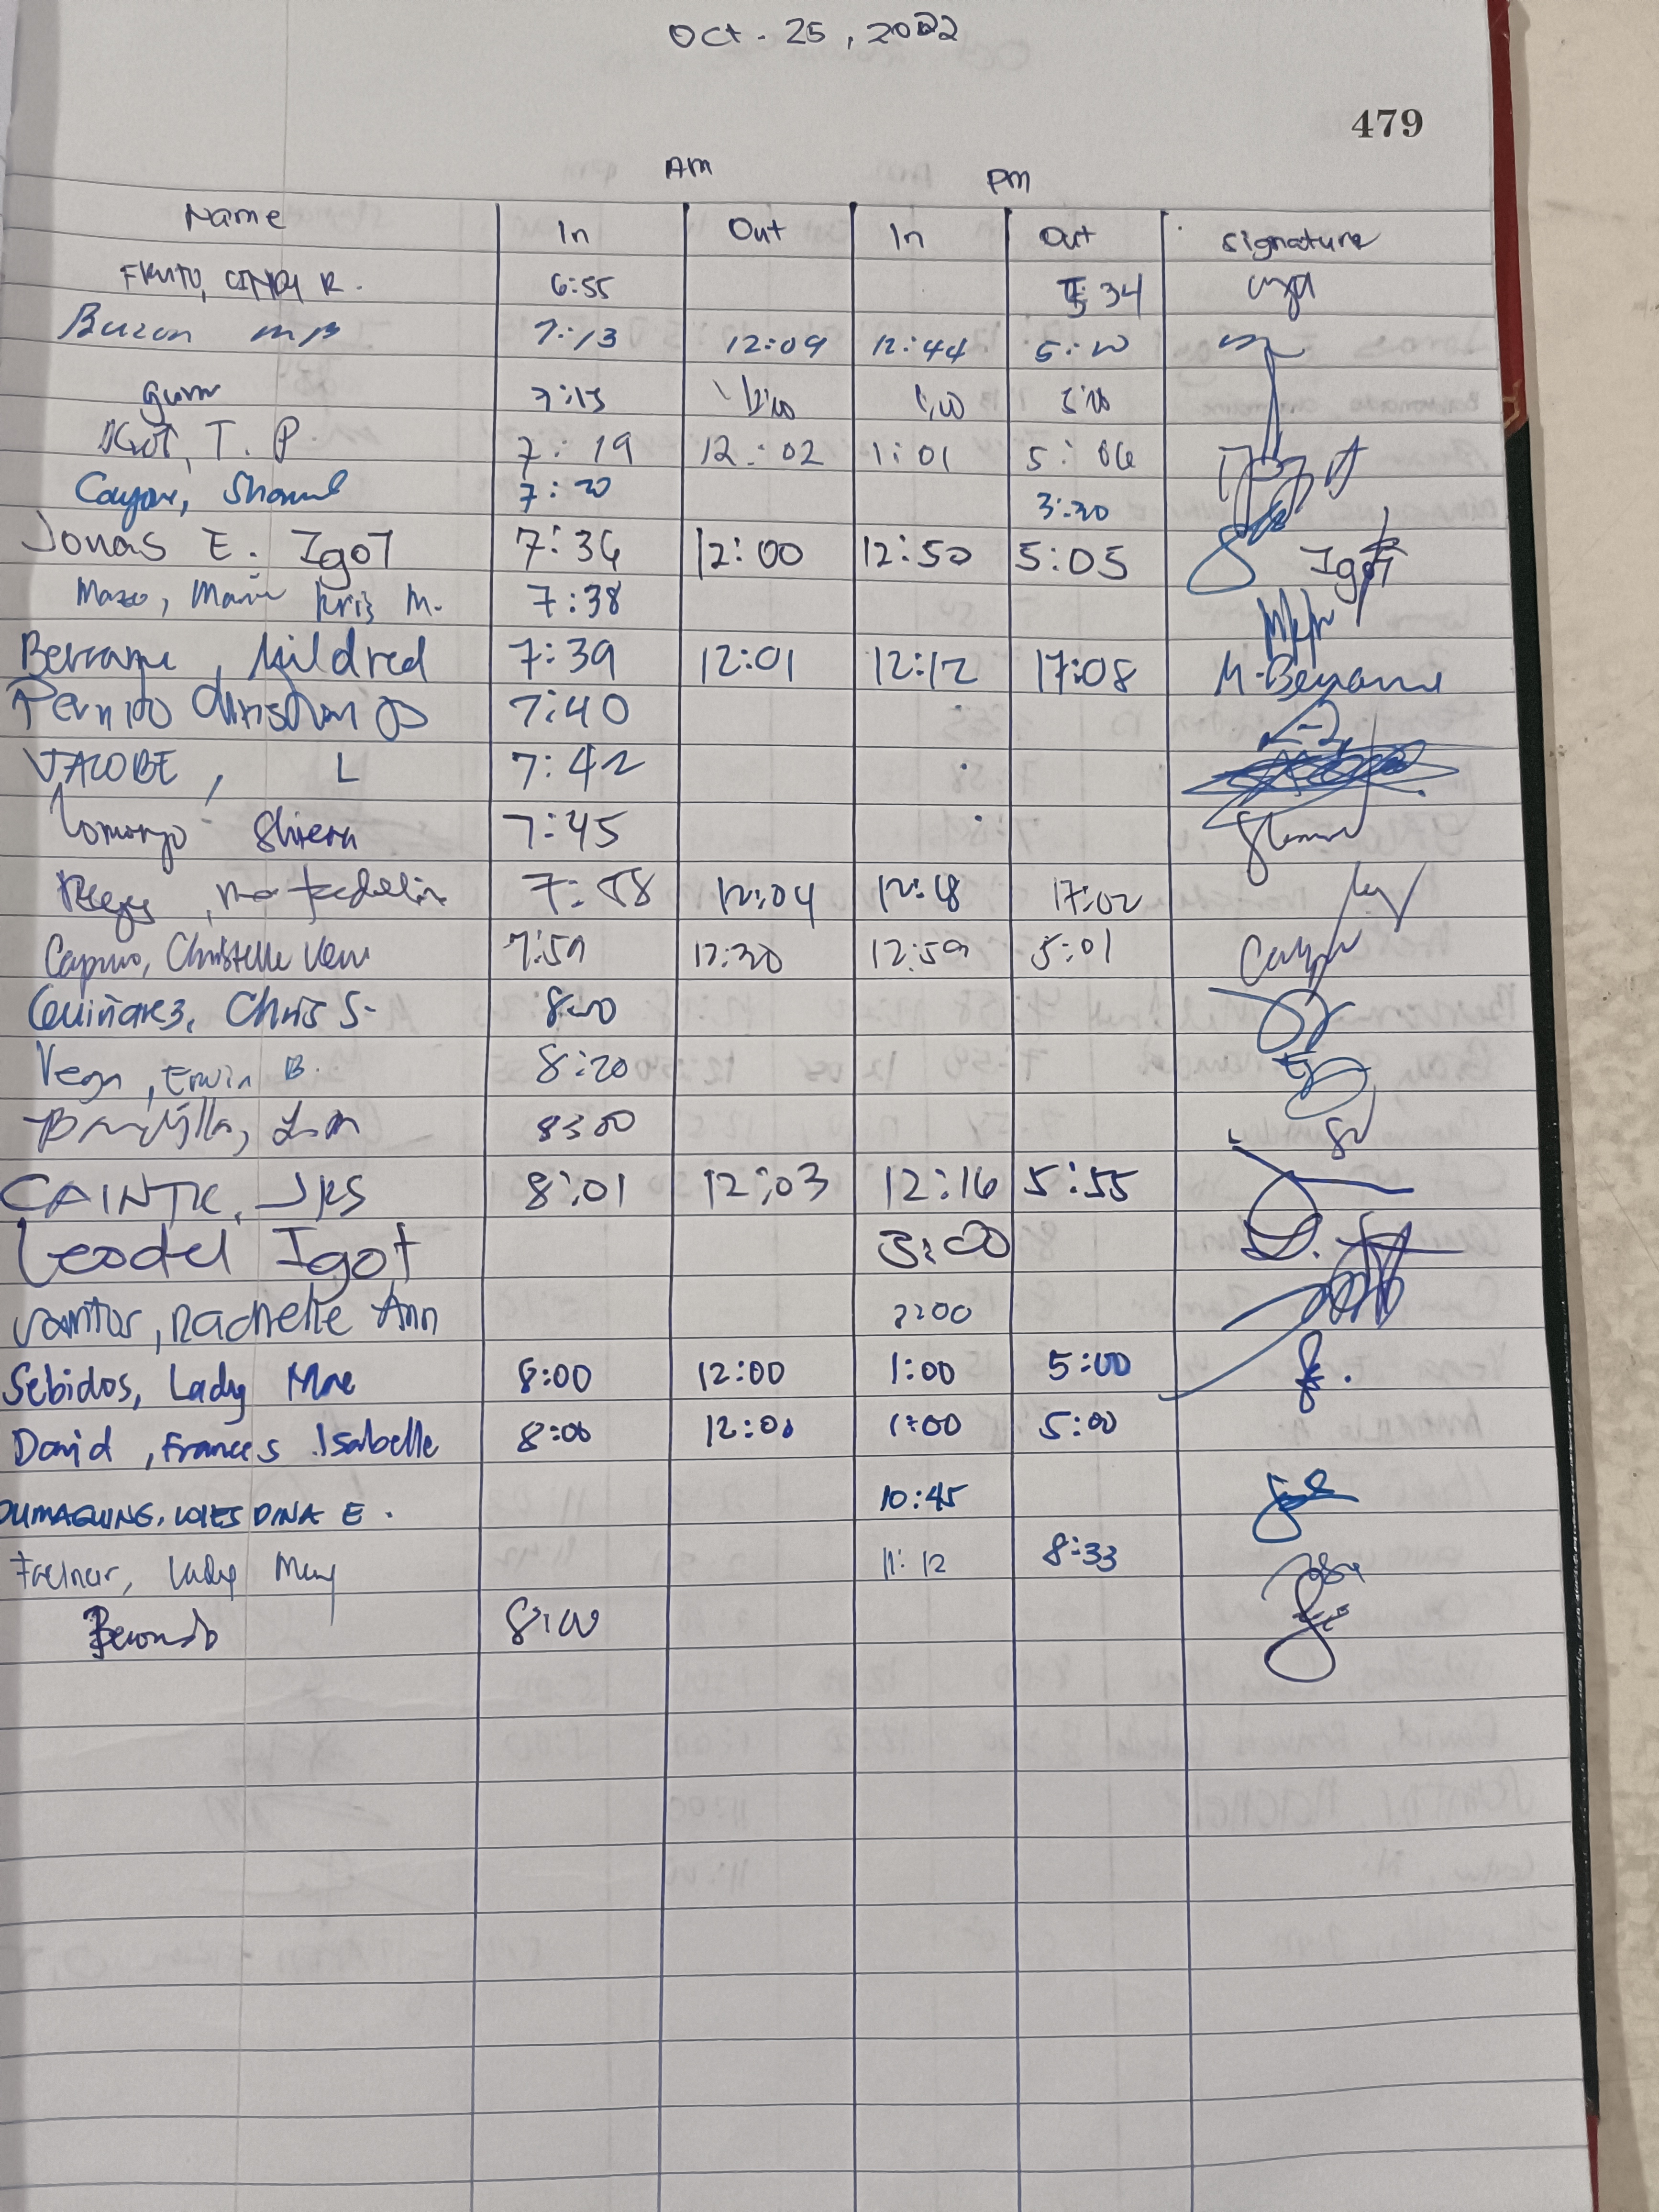 Oct. 25, 2022
479
Am Pm
Name In Out In Out Signature
FRUTO, CINDY R. 6:55 5:34
Buzon MB 7:13 12:09 12:44 5:10
7:15 12:10 1:00 5:10
IGOT, T. P 7:19 12:02 1:01 5:06
7:20 3:30
Jonas E. Igot 7:36 12:00 12:50 5:05 Igot
Mazo, Marie Kris M. 7:38
Berrame, Mildred 7:39 12:01 12:12 17:08 M. Berrame
Pernito Christian 7:40
JACOBE, L 7:42
Shiera 7:45
Reyes, Ma. 7:58 12:04 12:18 17:02
Capino, Christelle 7:59 12:30 12:59 5:01
Quiñanez, Chris S. 8:00
Vega, Erwin B. 8:20
8:00
CAINTIC, JKS 8:01 12:03 12:16 5:55
Leodel Igot 3:00
Santos, Rachelle Ann
Sebidos, Lady Mae 8:00 12:00 1:00 5:00
David, Frances Isabelle 8:00 12:00 1:00 5:00
DUMAGUING, LOIES DINA E. 10:45
Lady May 11:12 8:33
8:00